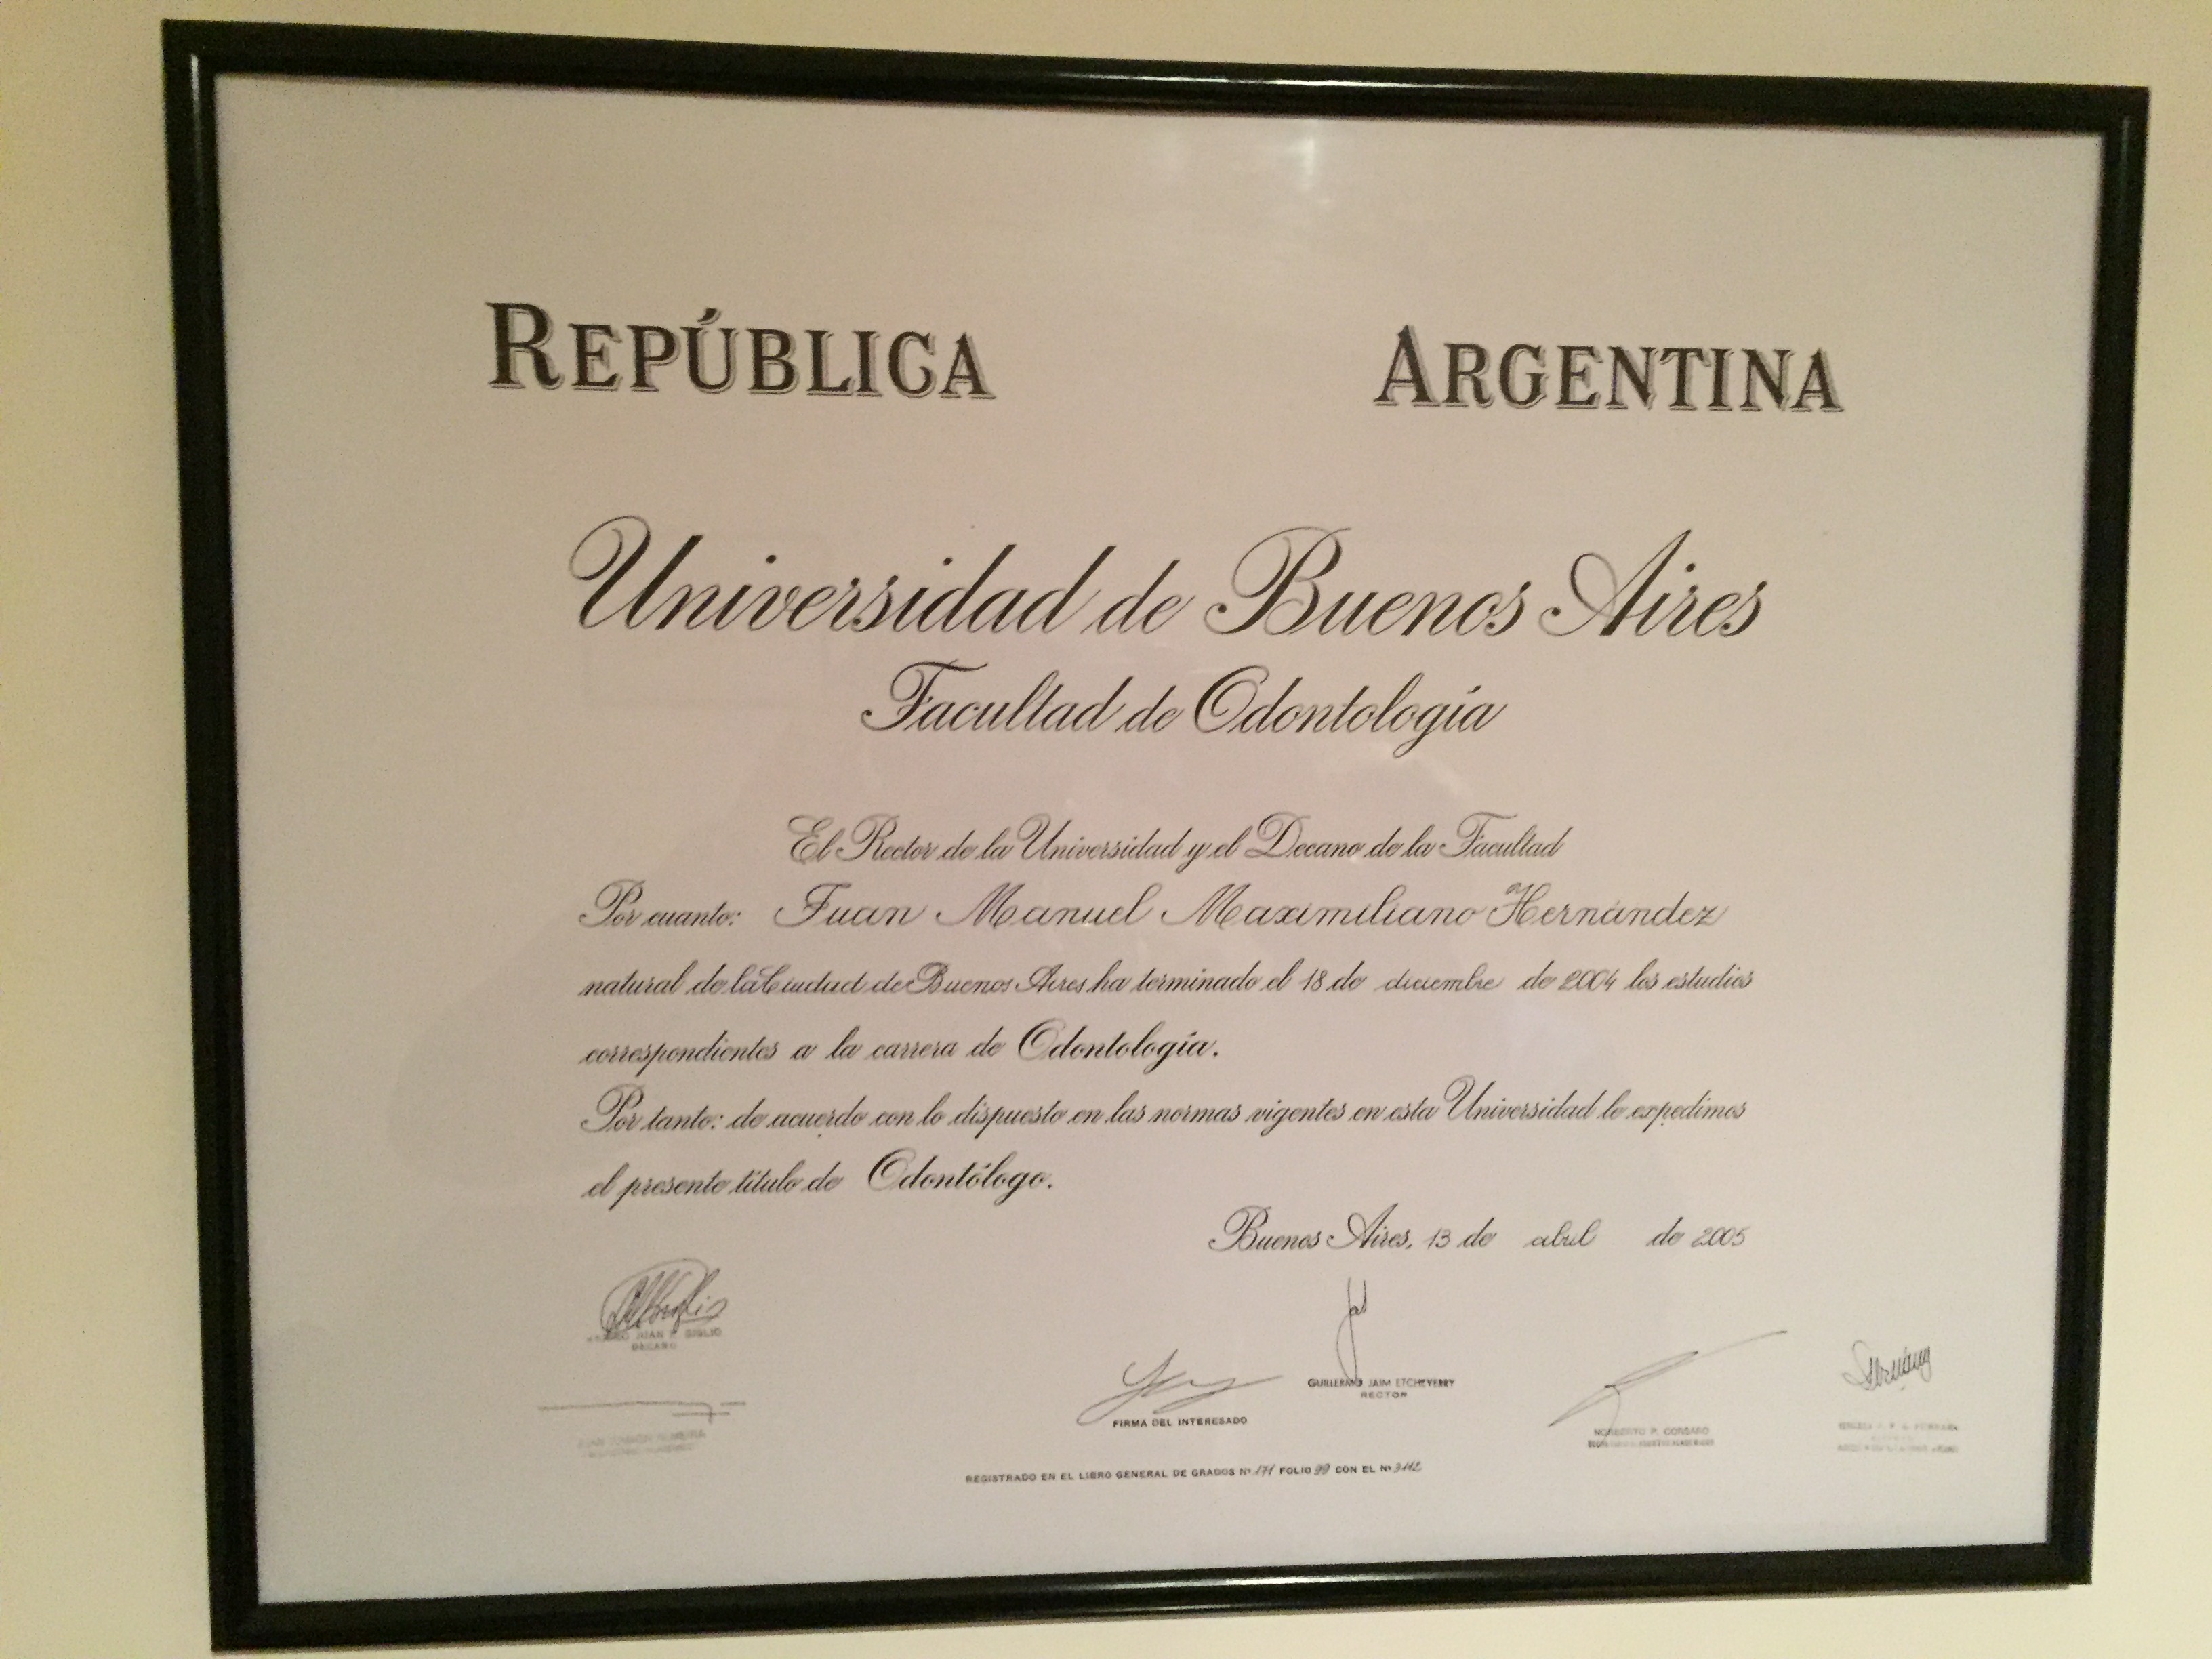 REPÚBLICA ARGENTINA
Universidad de Buenos Aires
Facultad de Odontología
El Rector de la Universidad y el Decano de la Facultad
Por cuanto: Juan Manuel Maximiliano Hernández
natural de la Ciudad de Buenos Aires ha terminado el 18 de diciembre de 2004 los estudios
correspondientes a la carrera de Odontología.
Por tanto: de acuerdo con lo dispuesto en las normas vigentes en esta Universidad le expedimos
el presente título de Odontólogo.
Buenos Aires, 13 de abril de 2005
JUAN P. GIGLIO
DECANO
GUILLERMO JAIM ETCHEVERRY
RECTOR
FIRMA DEL INTERESADO
NORBERTO P. CORSARO
REGISTRADO EN EL LIBRO GENERAL DE GRADOS Nº 171 FOLIO 99 CON EL Nº 3112